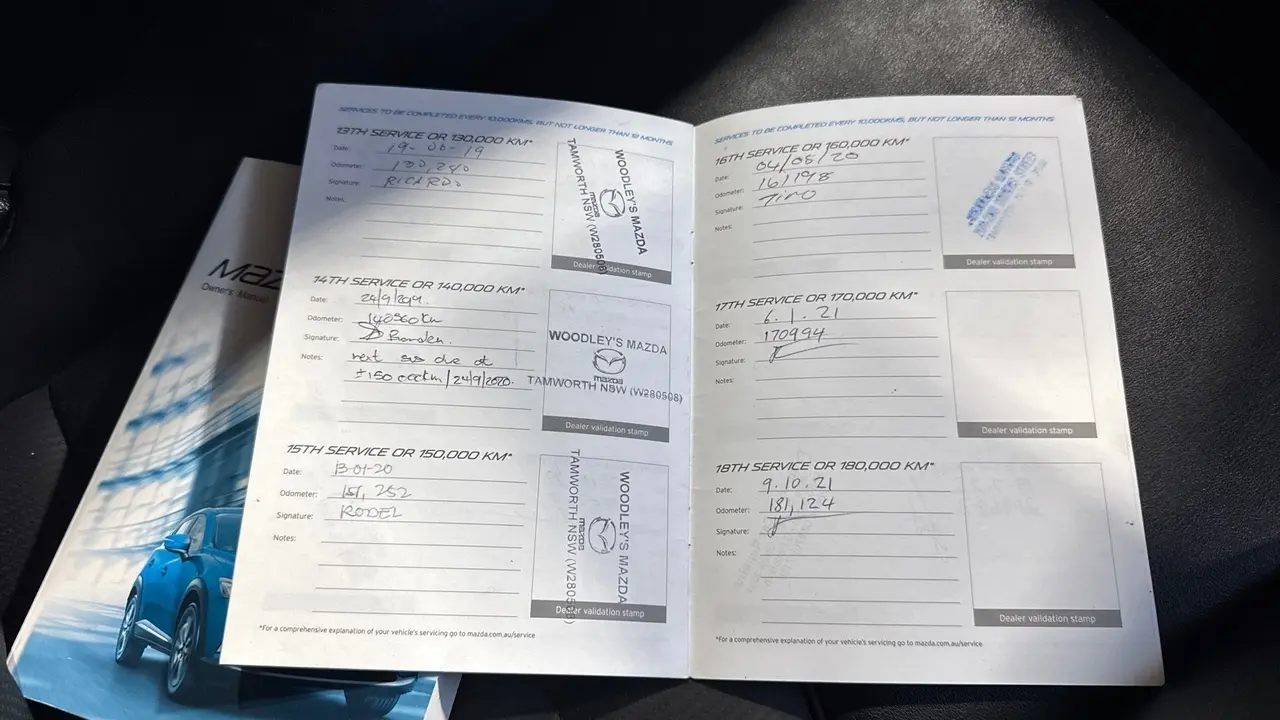 SERVICES TO BE COMPLETED EVERY 10,000KMS, BUT NOT LONGER THAN 12 MONTHS
13TH SERVICE OR 130,000 KM*
Date: 19-06-19
Odometer: 130,240
Signature: RICARDO
Notes:
WOODLEY'S MAZDA
mazda
TAMWORTH NSW (W280508)
Dealer validation stamp
14TH SERVICE OR 140,000 KM*
Date: 24/9/2019.
Odometer: km
Signature:
Notes: next due at
24/9/2020.
WOODLEY'S MAZDA
mazda
TAMWORTH NSW (W280508)
Dealer validation stamp
15TH SERVICE OR 150,000 KM*
Date: 13-01-20
Odometer: 151,252
Signature: RODEL
Notes:
WOODLEY'S MAZDA
mazda
TAMWORTH NSW (W280508)
Dealer validation stamp
*For a comprehensive explanation of your vehicle's servicing go to mazda.com.au/service
SERVICES TO BE COMPLETED EVERY 10,000KMS, BUT NOT LONGER THAN 12 MONTHS
16TH SERVICE OR 160,000 KM*
Date: 04/08/20
Odometer: 161198
Signature: TINO
Notes:
Dealer validation stamp
17TH SERVICE OR 170,000 KM*
Date: 6.1.21
Odometer: 170994
Signature:
Notes:
Dealer validation stamp
18TH SERVICE OR 180,000 KM*
Date: 9.10.21
Odometer: 181,124
Signature:
Notes:
Dealer validation stamp
*For a comprehensive explanation of your vehicle's servicing go to mazda.com.au/service
Owner's Manual